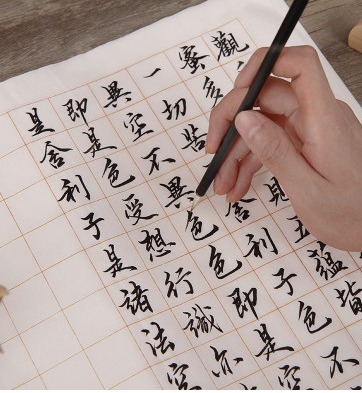 觀
蜜多見五蘊皆
一切苦舍利子色不
異空不異色色即是空
即是色受想行識亦
是舍利子是諸法空